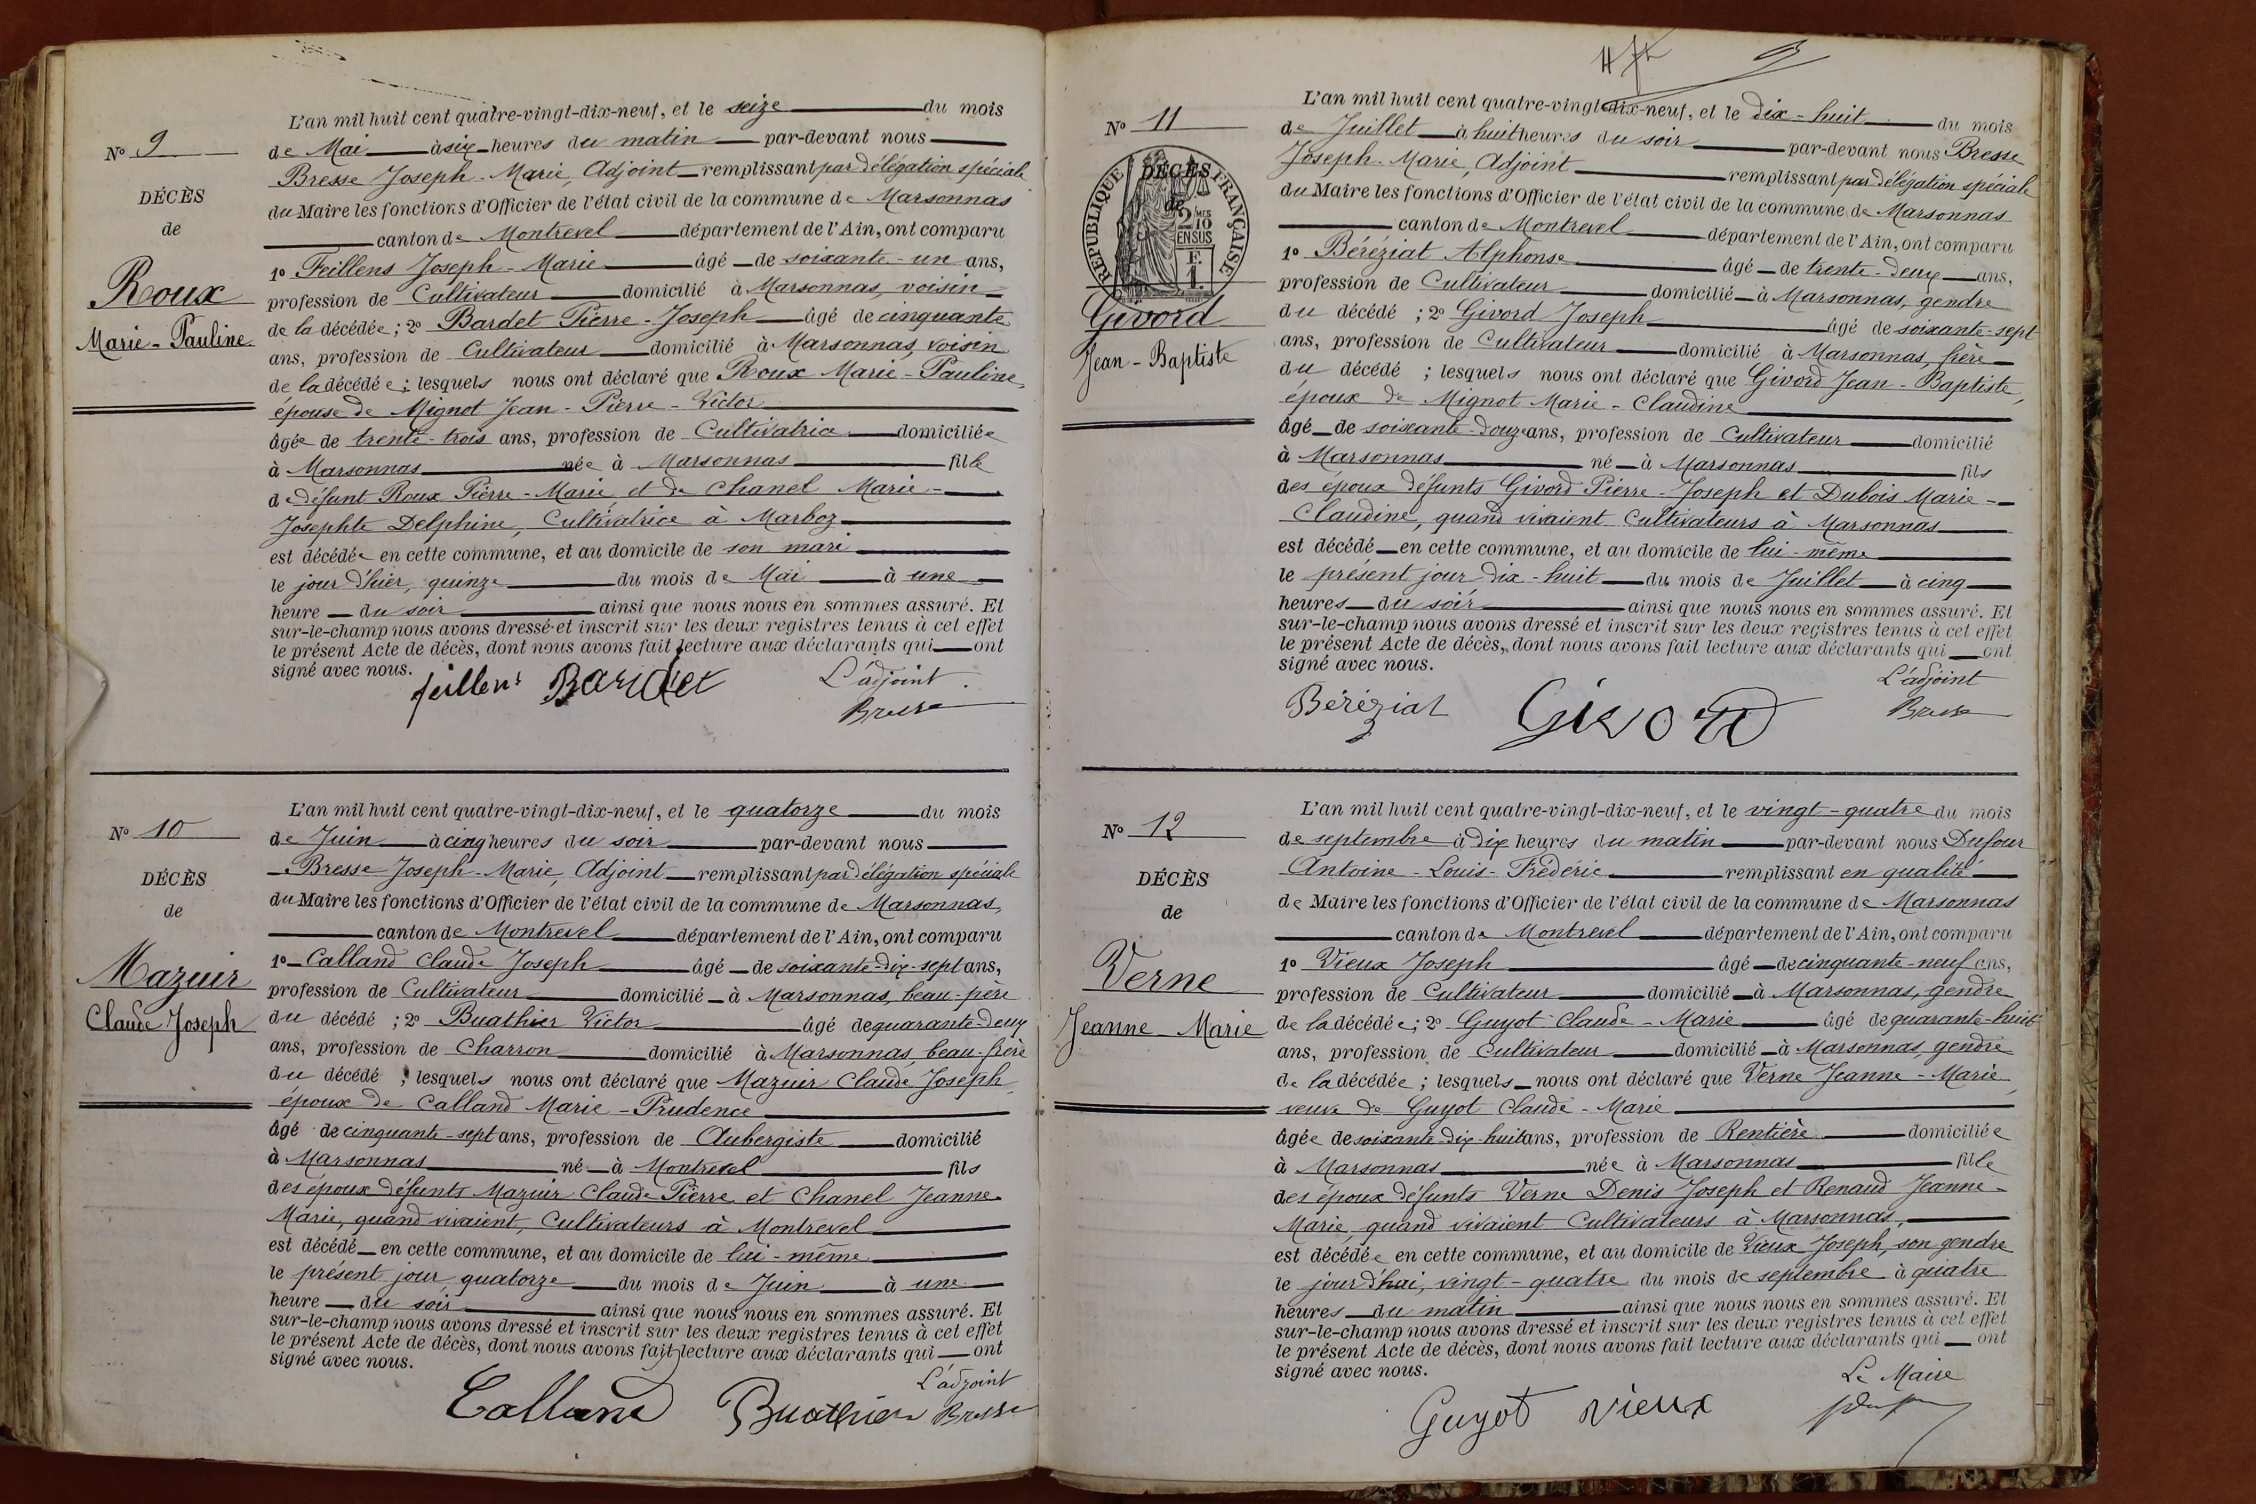 N° 9
DÉCÈS
de
Roux
Marie-Pauline
L'an mil huit cent quatre-vingt-dix-neuf, et le seize du mois
de Mai à six heures du matin par-devant nous
Bresse Joseph-Marie, Adjoint remplissant par délégation spéciale
du Maire les fonctions d'Officier de l'état civil de la commune de Marsonnas
canton de Montrevel département de l'Ain, ont comparu
1° Feillens Joseph-Marie âgé de soixante-un ans,
profession de Cultivateur domicilié à Marsonnas, voisin
de la décédée; 2° Bardet Pierre-Joseph âgé de cinquante
ans, profession de Cultivateur domicilié à Marsonnas, voisin
de la décédée; lesquels nous ont déclaré que Roux Marie-Pauline,
épouse de Mignot Jean-Pierre-Victor
âgée de trente-trois ans, profession de Cultivatrice domiciliée
à Marsonnas née à Marsonnas fille
de défunt Roux Pierre-Marie et de Chanel Marie-
Josephte Delphine, Cultivatrice à Marboz
est décédée en cette commune, et au domicile de son mari
le jour d'hier, quinze du mois de Mai à une
heure du soir ainsi que nous nous en sommes assuré. Et
sur-le-champ nous avons dressé et inscrit sur les deux registres tenus à cet effet
le présent Acte de décès, dont nous avons fait lecture aux déclarants qui ont
signé avec nous.
L'adjoint
feillens Bardet Bresse
N° 10
DÉCÈS
de
Mazuir
Claude Joseph
L'an mil huit cent quatre-vingt-dix-neuf, et le quatorze du mois
de Juin à cinq heures du soir par-devant nous
Bresse Joseph-Marie, Adjoint remplissant par délégation spéciale
du Maire les fonctions d'Officier de l'état civil de la commune de Marsonnas,
canton de Montrevel département de l'Ain, ont comparu
1° Calland Claude Joseph âgé de soixante-dix-sept ans,
profession de Cultivateur domicilié à Marsonnas, beau-père
du décédé; 2° Buathier Victor âgé de quarante-deux
ans, profession de Charron domicilié à Marsonnas, beau-frère
du décédé; lesquels nous ont déclaré que Mazuir Claude Joseph,
époux de Calland Marie-Prudence
âgé de cinquante-sept ans, profession de Aubergiste domicilié
à Marsonnas né à Montrevel fils
des époux défunts Mazuir Claude Pierre et Chanel Jeanne-
Marie, quand vivaient, Cultivateurs à Montrevel
est décédé en cette commune, et au domicile de lui-même
le présent jour quatorze du mois de Juin à une
heure du soir ainsi que nous nous en sommes assuré. Et
sur-le-champ nous avons dressé et inscrit sur les deux registres tenus à cet effet
le présent Acte de décès, dont nous avons fait lecture aux déclarants qui ont
signé avec nous.
L'adjoint
Calland Buathier Bresse
N° 11
DÉCÈS
de
RÉPUBLIQUE FRANÇAISE
2 MES
10
EN SUS
F.
1.
Givord
Jean-Baptiste
L'an mil huit cent quatre-vingt-dix-neuf, et le dix-huit du mois
de Juillet à huit heures du soir par-devant nous Bresse
Joseph-Marie, Adjoint remplissant par délégation spéciale
du Maire les fonctions d'Officier de l'état civil de la commune de Marsonnas
canton de Montrevel département de l'Ain, ont comparu
1° Béréziat Alphonse âgé de trente-deux ans,
profession de Cultivateur domicilié à Marsonnas, gendre
du décédé; 2° Givord Joseph âgé de soixante-sept
ans, profession de Cultivateur domicilié à Marsonnas, frère
du décédé; lesquels nous ont déclaré que Givord Jean-Baptiste,
époux de Mignot Marie-Claudine
âgé de soixante-douze ans, profession de Cultivateur domicilié
à Marsonnas né à Marsonnas fils
des époux défunts Givord Pierre-Joseph et Dubois Marie-
Claudine, quand vivaient Cultivateurs à Marsonnas
est décédé en cette commune, et au domicile de lui-même
le présent jour dix-huit du mois de Juillet à cinq
heures du soir ainsi que nous nous en sommes assuré. Et
sur-le-champ nous avons dressé et inscrit sur les deux registres tenus à cet effet
le présent Acte de décès, dont nous avons fait lecture aux déclarants qui ont
signé avec nous.
L'adjoint
Béréziat Givord Bresse
N° 12
DÉCÈS
de
Verne
Jeanne-Marie
L'an mil huit cent quatre-vingt-dix-neuf, et le vingt-quatre du mois
de septembre à dix heures du matin par-devant nous Dufour
Antoine-Louis-Frédéric remplissant en qualité
de Maire les fonctions d'Officier de l'état civil de la commune de Marsonnas
canton de Montrevel département de l'Ain, ont comparu
1° Vieux Joseph âgé de cinquante-neuf ans,
profession de Cultivateur domicilié à Marsonnas, gendre
de la décédée; 2° Guyot Claude-Marie âgé de quarante-huit
ans, profession de Cultivateur domicilié à Marsonnas, gendre
de la décédée; lesquels nous ont déclaré que Verne Jeanne-Marie,
veuve de Guyot Claude-Marie
âgée de soixante-dix-huit ans, profession de Rentière domiciliée
à Marsonnas née à Marsonnas fille
des époux défunts Verne Denis Joseph et Renaud Jeanne-
Marie, quand vivaient Cultivateurs à Marsonnas,
est décédée en cette commune, et au domicile de Vieux Joseph, son gendre
le jour d'hui, vingt-quatre du mois de septembre à quatre
heures du matin ainsi que nous nous en sommes assuré. Et
sur-le-champ nous avons dressé et inscrit sur les deux registres tenus à cet effet
le présent Acte de décès, dont nous avons fait lecture aux déclarants qui ont
signé avec nous.
Le Maire
Guyot Vieux